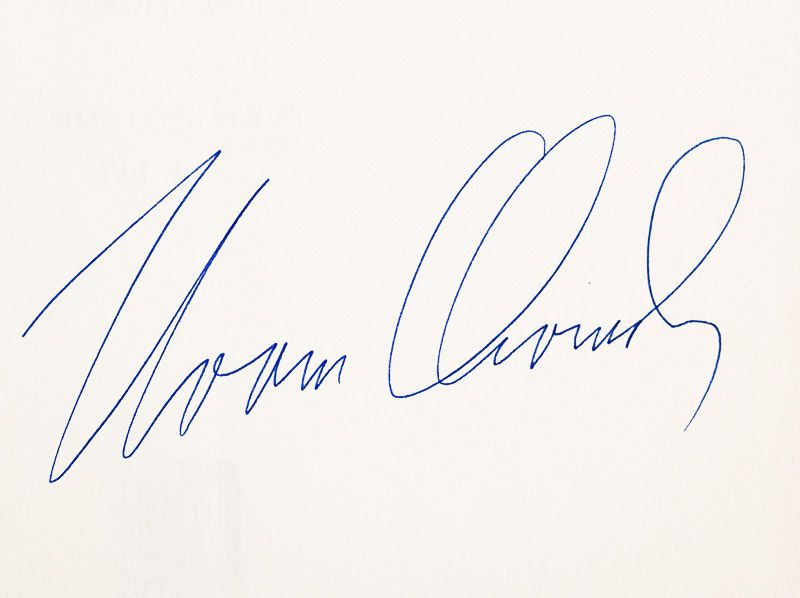 Noam Chomsky